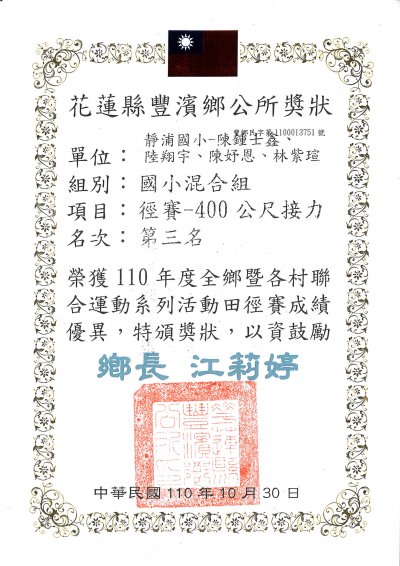 花蓮縣豐濱鄉公所獎狀
豐鄉民字第1100013751號
靜浦國小-陳鍾士鑫、
單位：陸翔宇、陳妤恩、林紫瑄
組別：國小混合組
項目：徑賽-400公尺接力
名次：第三名
榮獲110年度全鄉暨各村聯
合運動系列活動田徑賽成績
優異，特頒獎狀，以資鼓勵
鄉長 江莉婷
中華民國110年10月30日